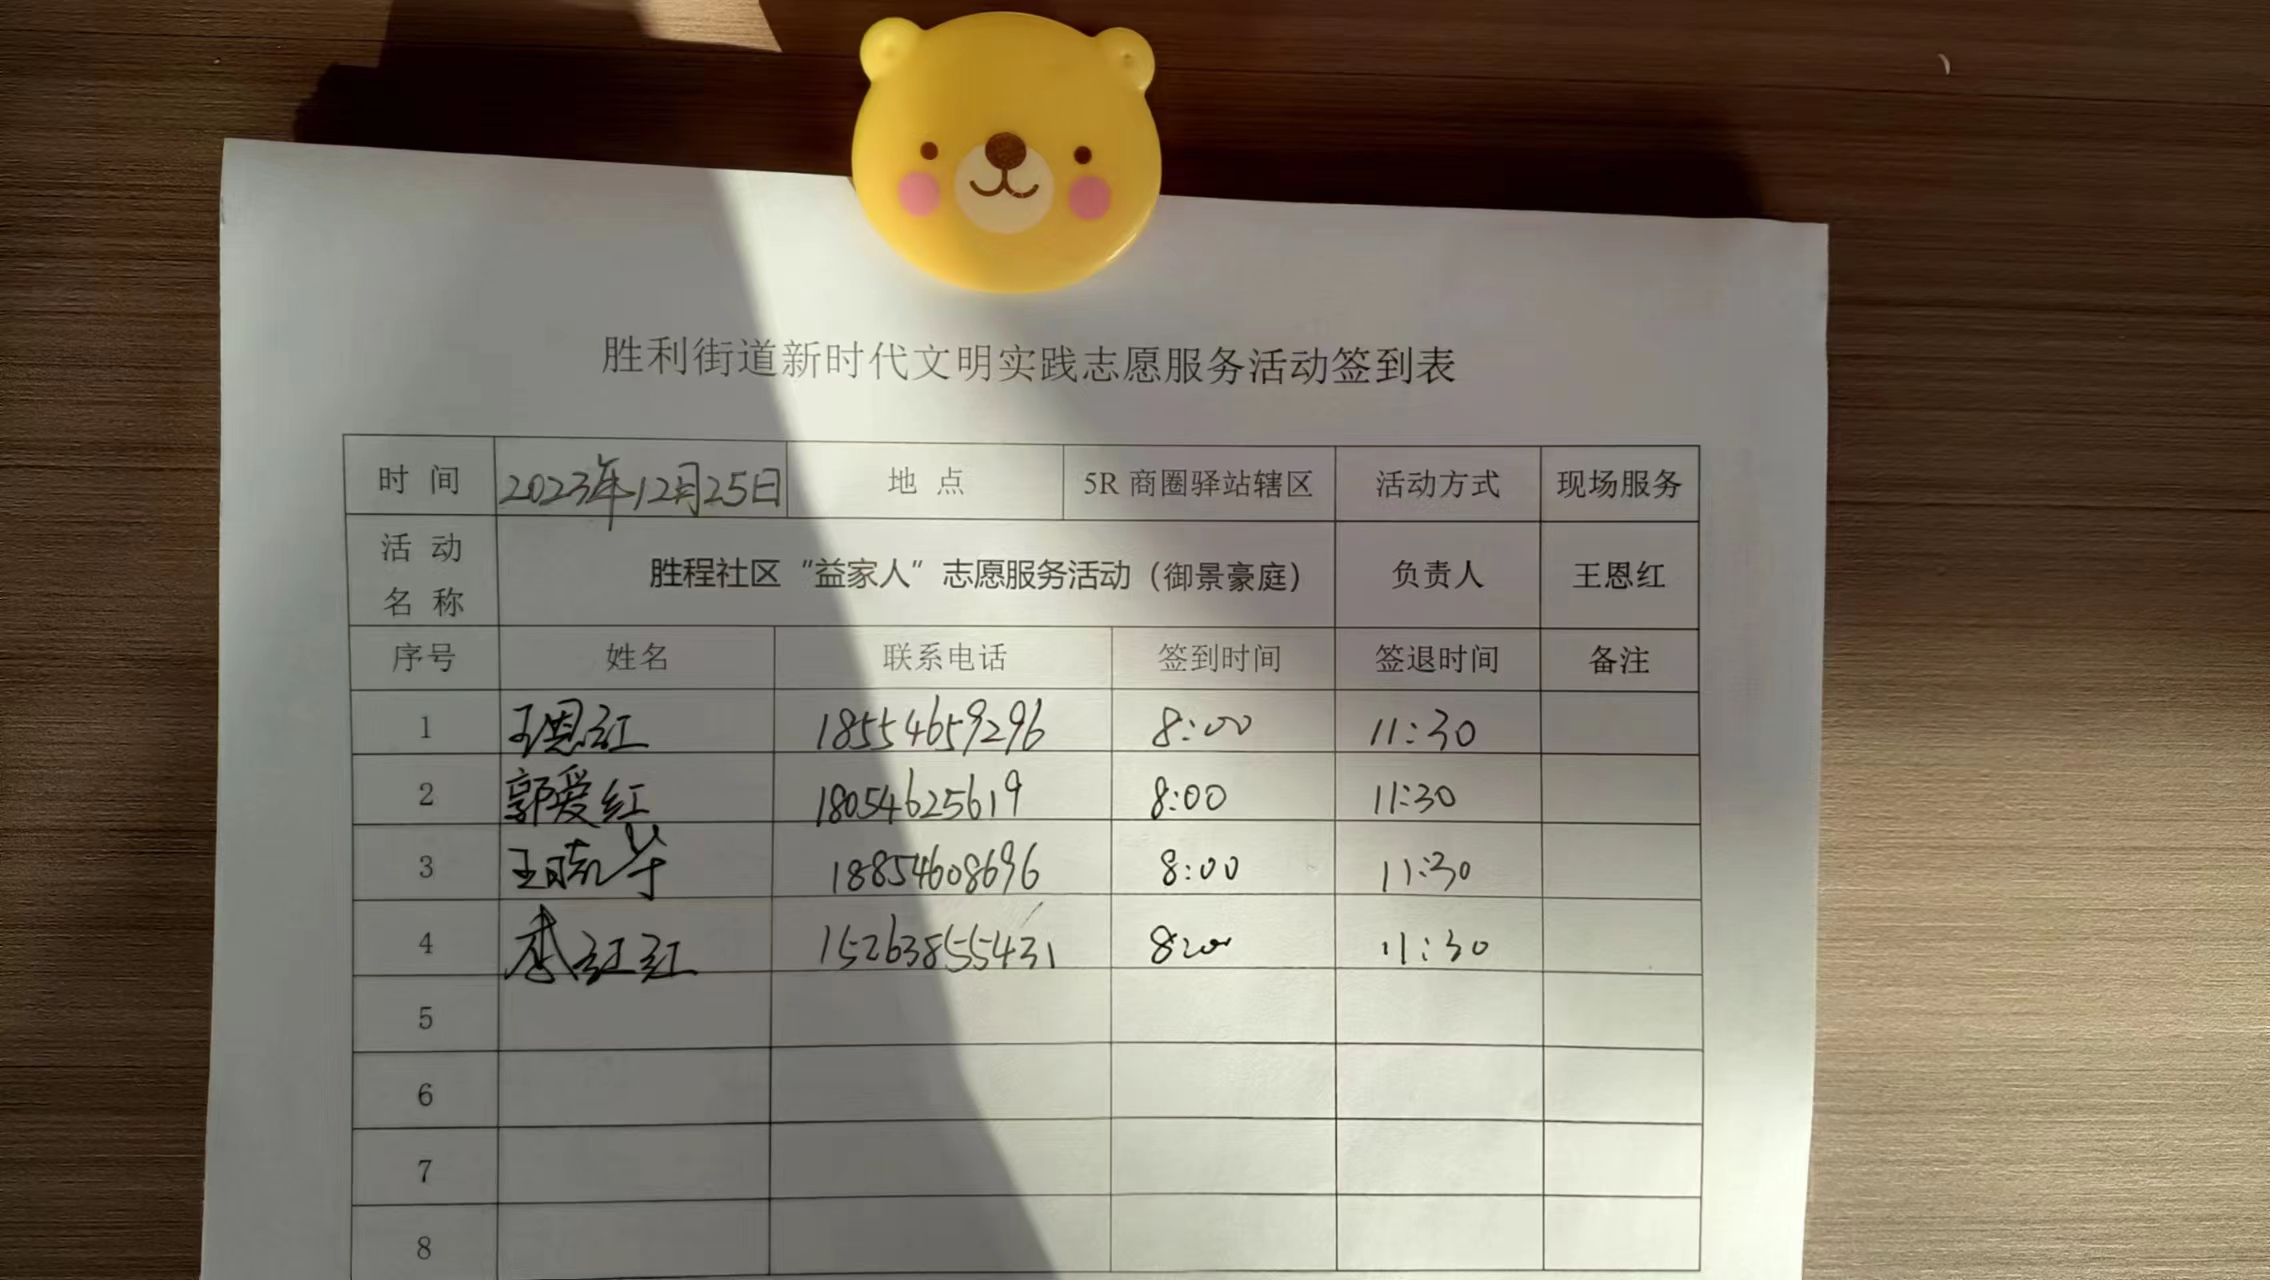 胜利街道新时代文明实践志愿服务活动签到表
时 间 2023年12月25日 地 点 5R 商圈驿站辖区 活动方式 现场服务
活 动
名 称 胜程社区“益家人”志愿服务活动（御景豪庭） 负责人 王恩红
序号 姓名 联系电话 签到时间 签退时间 备注
1 王恩红 18554659296 8:00 11:30
2 郭爱红 18054625619 8:00 11:30
3 王晓芳 18854608696 8:00 11:30
4 李红红 15263855431 8:00 11:30
5
6
7
8